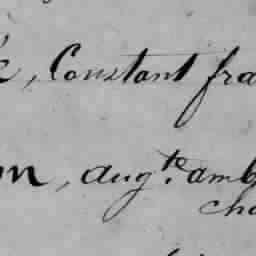 , Constant fra
, aug.te amb
cha